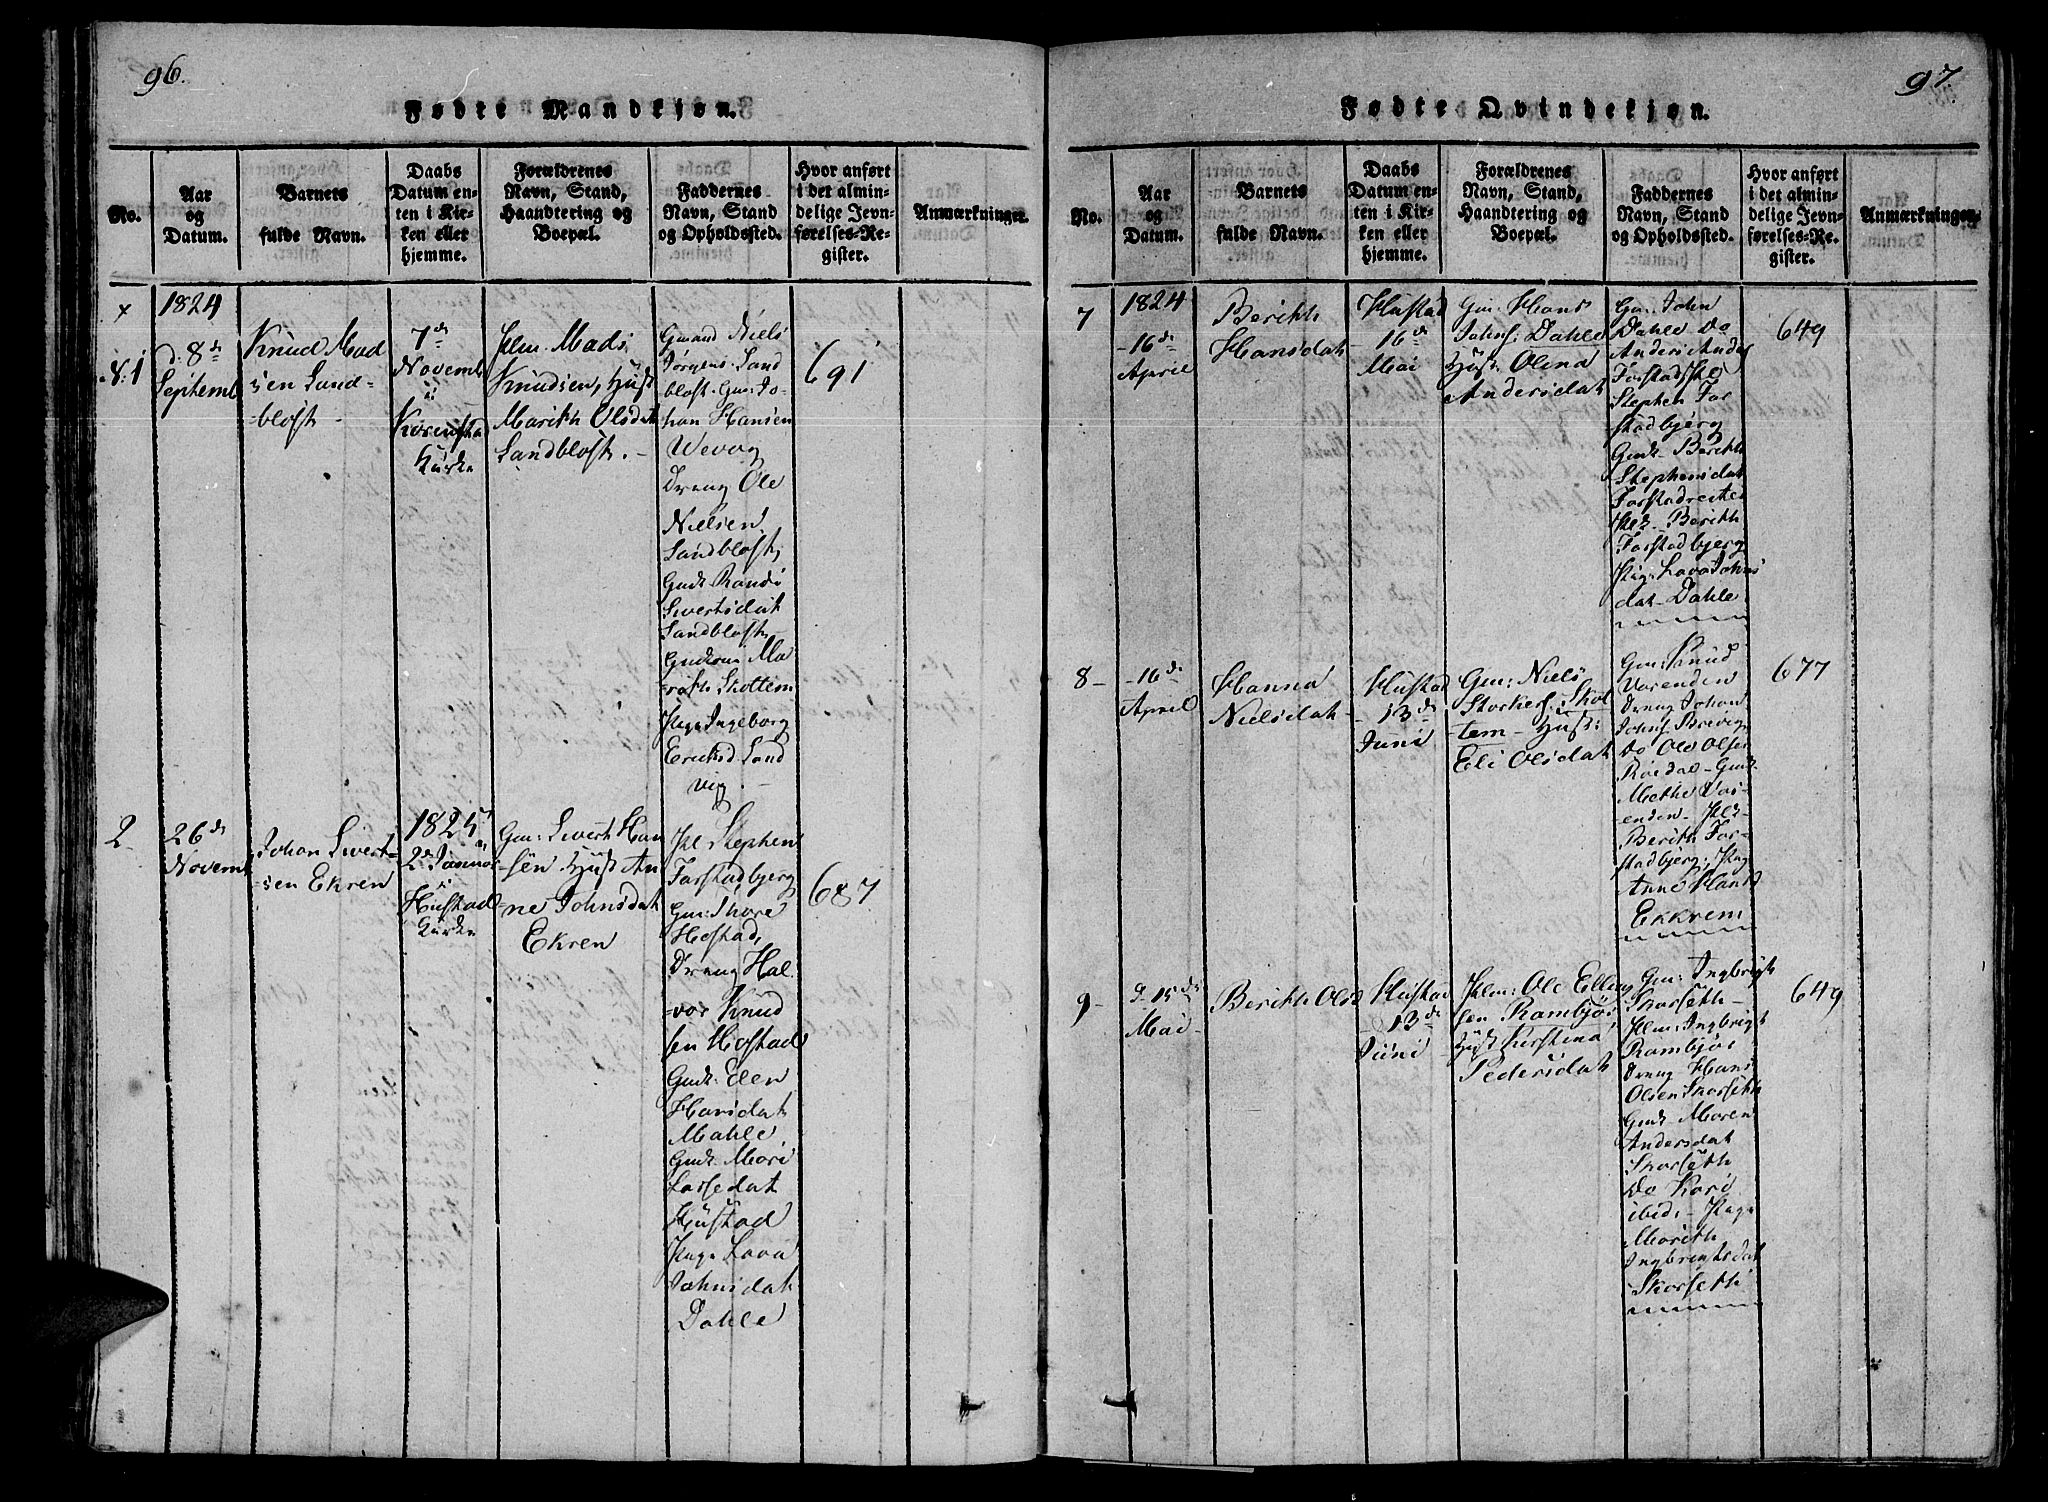 96.
Fødte Mandkjøn.
No.
Aar
og
Datum.
Barnets
fulde Navn.
Daabs
Datum en-
ten i Kir-
ken eller
hjemme.
Forældrenes
Navn, Stand,
Haandtering og
Boepæl.
Faddernes
Navn, Stand
og Opholdssted.
Hvor anført
i det almin-
delige Jevn-
førelses-Re-
gister.
Anmærkninger.
N:1
1824
d: 8de
Septemb
Knud Mad
sen Sand-
bloft
7de
Novemb
i
Kornstad
Kirke
Plm. Mads
Knudsen, Hust
Marith Olsdat
Sandbloft. -
Gmand Niels
Jørgens. Sand
bloft. Gm: Jo-
han Hansen
Wevog
Dreng Ole
Nielsen
Sandbloft,
Gmdk Randi
Sivertsdat
Sandbloft,
Ma
reth Skottem
Pige Ingeborg
Eriksd Sand
vig. -
691
2
26de
Novemb
Johan Sivert-
sen Ekren
1825
2de Januar
i
Hustad
Kirke
Gm: Sivert Han
sen Hust An
ne Johnsdat
Ekren
Pl Stephen
Farstadbjerg
Gm: Thore
Hostad,
Dreng Hal
vor Knud
sen Hostad
Gmdk: Eden
Hansdat
Mahle
Gmdk. Mari
Larsedat
Hustad
Pige Lava
Johnsdat
Dahle
687
97.
Fødte Qvindekjøn.
No.
Aar
og
Datum.
Barnets
fulde Navn.
Daabs
Datum en-
ten i Kir-
ken eller
hjemme.
Forældrenes
Navn, Stand,
Haandtering og
Boepæl.
Faddernes
Navn, Stand
og Opholdssted.
Hvor anført
i det almin-
delige Jevn-
førelses-Re-
gister.
Anmærkninger.
7
1824
-16de
April
Berith
Hansdat
Hustad
16de
Mai
Gm: Hans
Johns: Dahle
Hust: Olina
Andersdat
Gm: John
Dahle Do
Anders Anders
Farstad Pl:
Stephen Far
stadbjerg
Gmdk- Berith
Stephensdat
Farstadreiten
Plk- Berith
Farstadbjerg
Pig: Lava Johns
dat- Dahle
649
8-
-16de
April
Hanna
Nielsdat
Hustad
-13de
Juni
Gm: Niels
Storkers: Skot
tem- Hust:
Eli Olsdat
Gm: Knud
Varenden
Dreng Johan
Johns: Brevig
Do Ole Olsen
Røsdal- Gmdk.
Methe Vas-
enden- Plk-
Berith Far-
stadbjerg: Pig
Anne Hansd
Ekkrem
677
9-
d- 15de
Mai-
Berith Olsd
Hustad
13de
Juni
Plm: Ole Elling
sen Rambjør
Hust Kirstina
Pedersdat
Gm: Ingbrigt
Skarseth-
Plm: Ingbrigt
Rambjør
Dreng Hans
Olsen Skarseth
Gmdk Maren
Andersdat
Skarseth
Do Kari
ibid:- Pige
Marith
Ingbrigtsdat
Skarseth
649